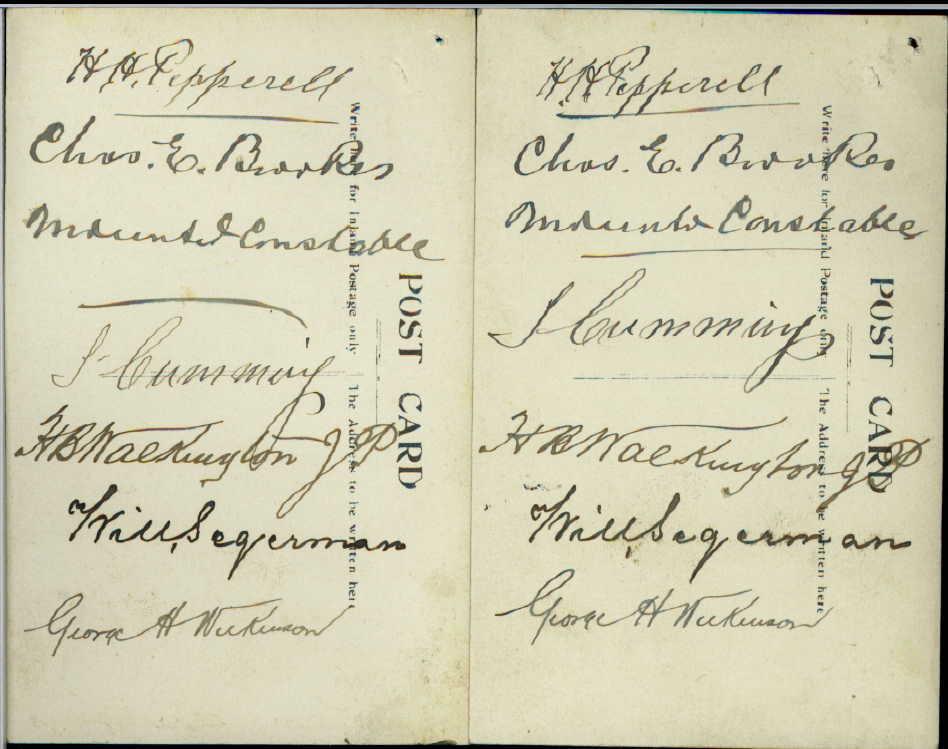 H. H. Pepperell
Chas. E. Brookes
Mounted Constable
J Cumming
H B Walkington J P
Will Segerman
George H Wilkinson
Write here for Inland Postage only
The Address to be written here
POST CARD
H. H. Pepperell
Chas. E. Brookes
Mounted Constable
J Cumming
H B Walkington J P
Will Segerman
George H Wilkinson
Write here for Inland Postage only
The Address to be written here
POST CARD